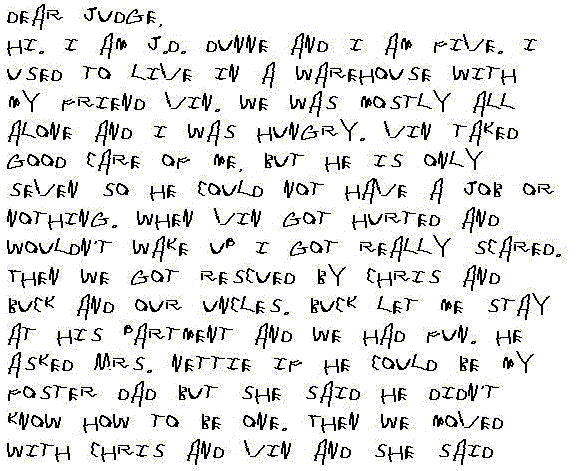 DEAR JUDGE,
HI. I AM J.D. DUNNE AND I AM FIVE. I
USED TO LIVE IN A WAREHOUSE WITH
MY FRIEND VIN. WE WAS MOSTLY ALL
ALONE AND I WAS HUNGRY. VIN TAKED
GOOD CARE OF ME, BUT HE IS ONLY
SEVEN SO HE COULD NOT HAVE A JOB OR
NOTHING. WHEN VIN GOT HURTED AND
WOULDN'T WAKE UP I GOT REALLY SCARED.
THEN WE GOT RESCUED BY CHRIS AND
BUCK AND OUR UNCLES. BUCK LET ME STAY
AT HIS PARTMENT AND WE HAD FUN. HE
ASKED MRS. NETTIE IF HE COULD BE MY
FOSTER DAD BUT SHE SAID HE DIDN'T
KNOW HOW TO BE ONE. THEN WE MOVED
WITH CHRIS AND VIN AND SHE SAID